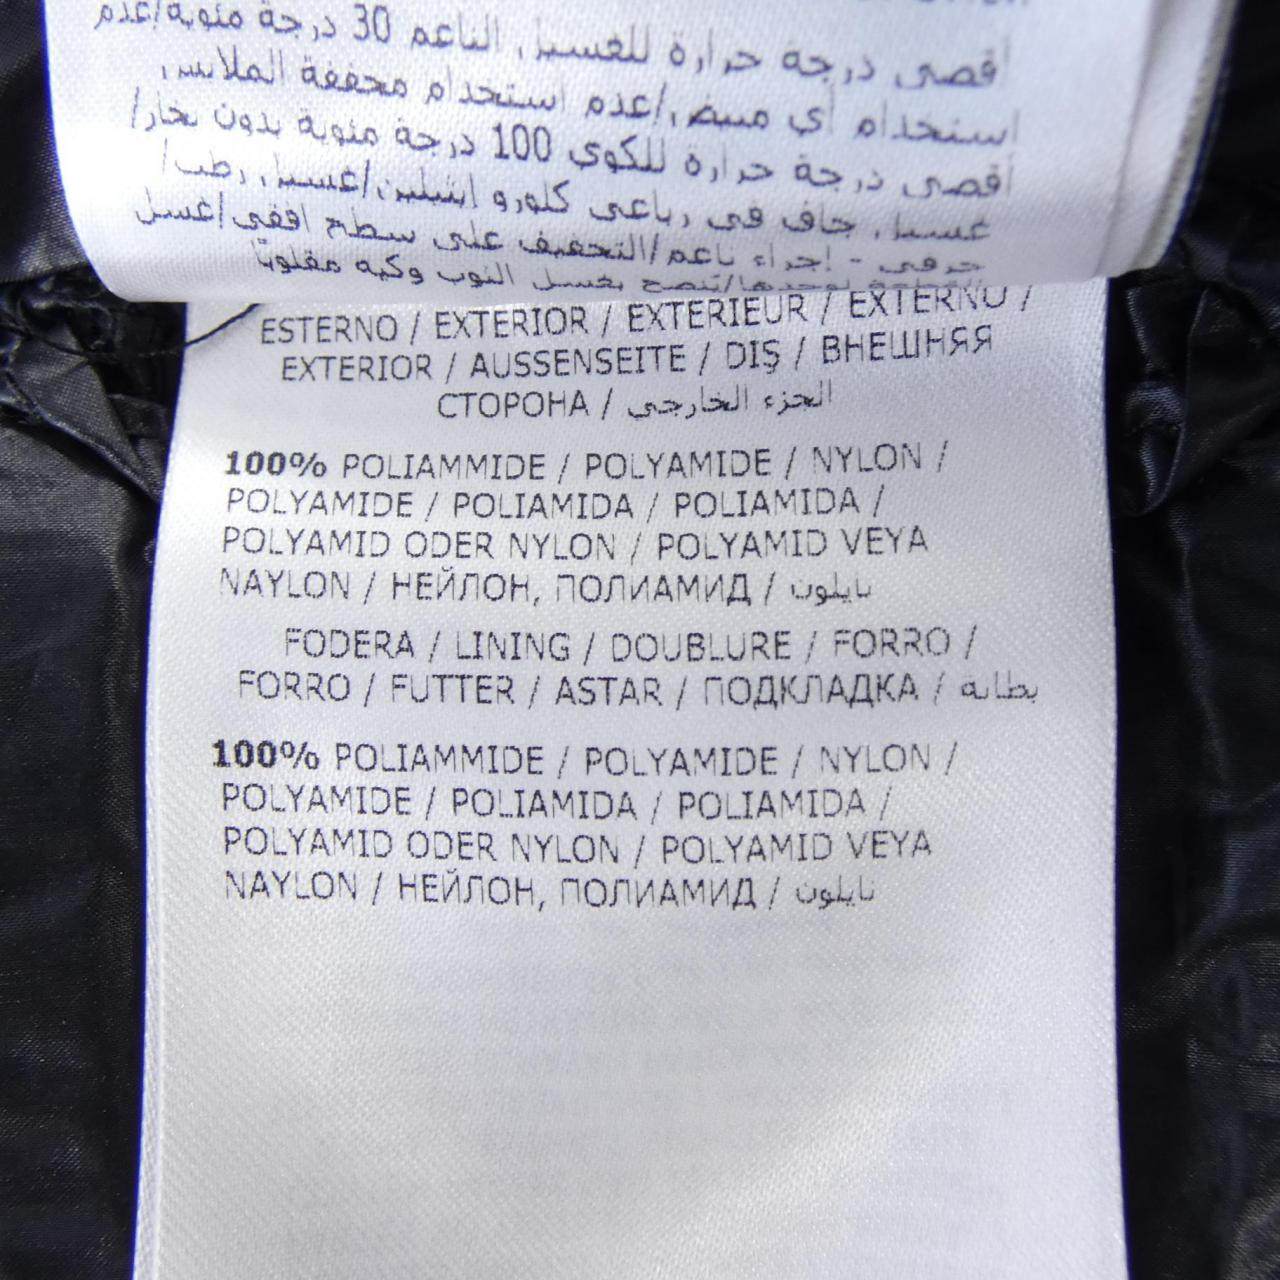 أقصى درجة حرارة للغسيل الناعم 30 درجة مئوية/عدم
استخدام أي مبيض/عدم استخدام مجففة الملابس
أقصى درجة حرارة للكوي 100 درجة مئوية بدون بخار/
غسيل جاف في رباعي كلورو ايثيلين/غسيل رطب/
حرفي - إجراء ناعم/التجفيف على سطح افقي/غسل
بغسل الثوب وكيه مقلوبًا
ESTERNO / EXTERIOR / EXTERIEUR / EXTERNO /
EXTERIOR / AUSSENSEITE / DIŞ / ВНЕШНЯЯ
СТОРОНА / الجزء الخارجي
100% POLIAMMIDE / POLYAMIDE / NYLON /
POLYAMIDE / POLIAMIDA / POLIAMIDA /
POLYAMID ODER NYLON / POLYAMID VEYA
NAYLON / НЕЙЛОН, ПОЛИАМИД / نايلون
FODERA / LINING / DOUBLURE / FORRO /
FORRO / FUTTER / ASTAR / ПОДКЛАДКА / بطانة
100% POLIAMMIDE / POLYAMIDE / NYLON /
POLYAMIDE / POLIAMIDA / POLIAMIDA /
POLYAMID ODER NYLON / POLYAMID VEYA
NAYLON / НЕЙЛОН, ПОЛИАМИД / نايلون